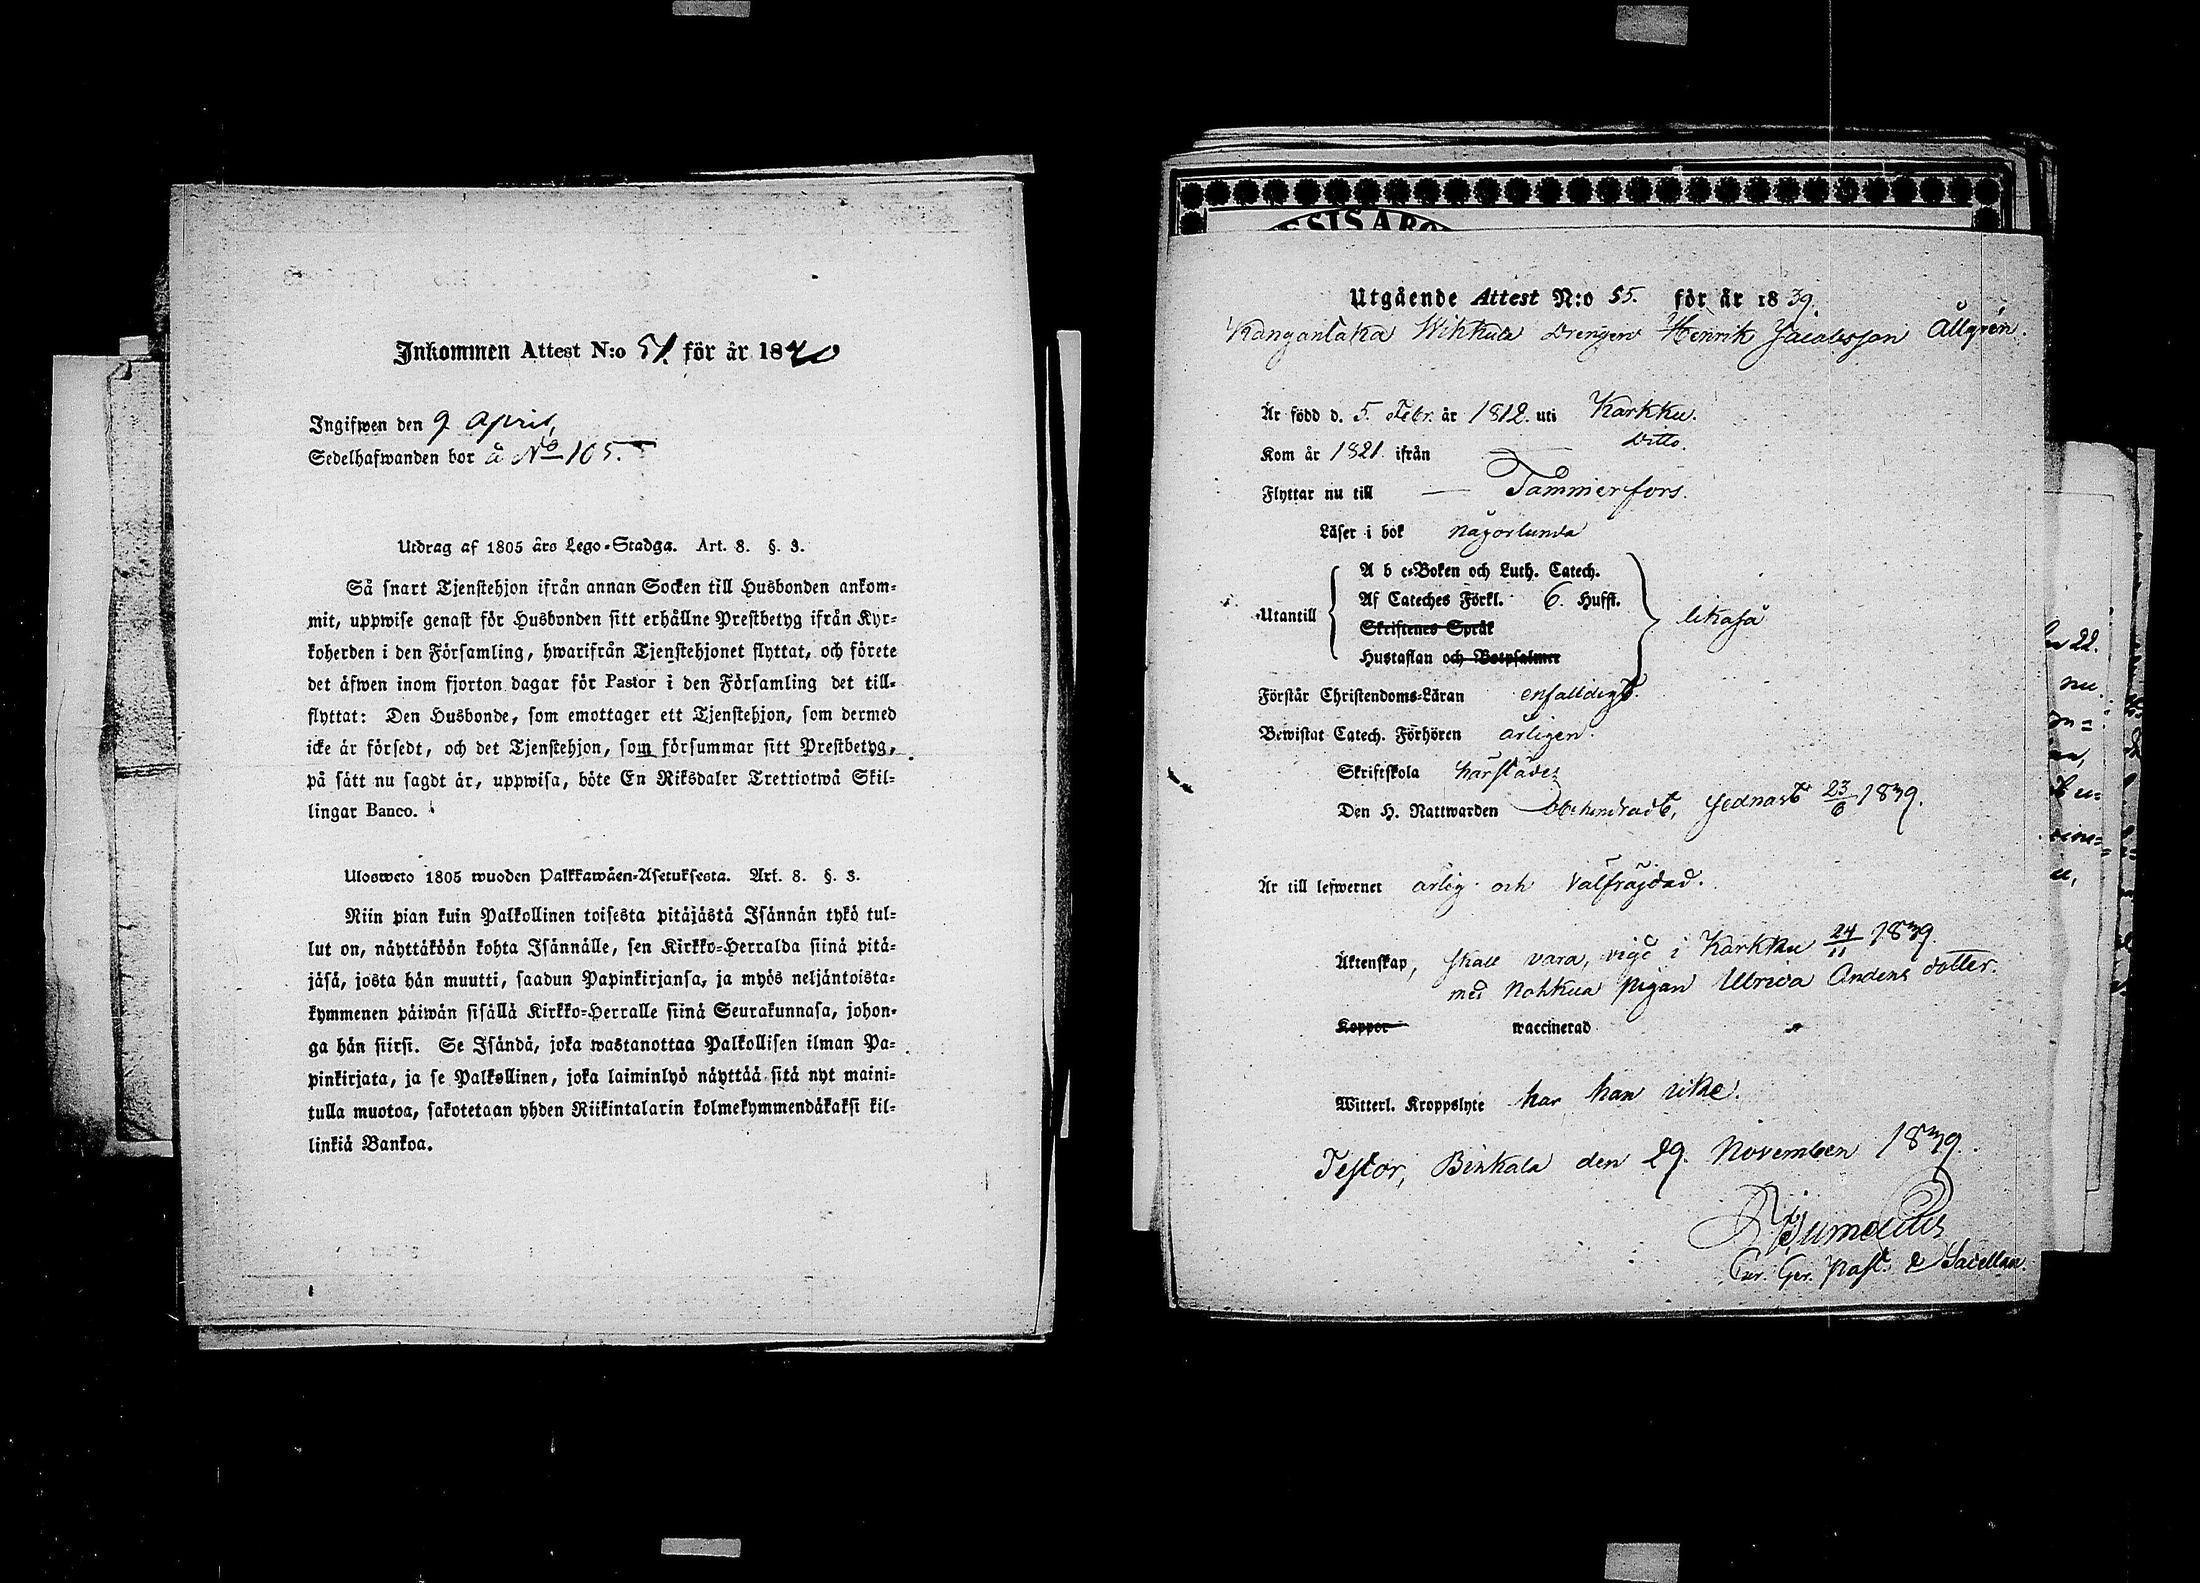 Inkommen Attest N:o 51. för år 1840
Ingifwen den 9 April,
Sedelhafwanden bor å No 105.
Utdrag af 1805 års Lego-Stadga. Art. 8. §. 3.
Så snart Tjenstehjon ifrån annan Socken till Husbonden ankom-
mit, uppwise genast för Husbonden sitt erhållne Prestbetyg ifrån Kyr-
koherden i den Församling, hwarifrån Tjenstehjonet flyttat, och förete
det äfwen inom fjorton dagar för Pastor i den Församling det till-
flyttat: Den Husbonde, som emottager ett Tjenstehjon, som dermed
icke är försedt, och det Tjenstehjon, som försummar sitt Prestbetyg,
på sätt nu sagdt är, uppwisa, böte En Riksdaler Trettiotwå Skil-
lingar Banco.
Ulosweto 1805 wuoden Palkkawäen-Asetuksesta. Art. 8. §. 3.
Niin pian kuin Palkollinen toisesta pitäjästä Isännän tykö tul-
lut on, näyttäköön kohta Isännälle, sen Kirkko-Herralda siinä pitä-
jäsä, josta hän muutti, saadun Papinkirjansa, ja myös neljäntoista-
kymmenen päiwän sisällä Kirkko-Herralle siinä Seurakunnasa, johon-
ga hän siirsi. Se Isändä, joka wastanottaa Palkollisen ilman Pa-
pinkirjata, ja se Palkollinen, joka laiminlyö näyttää sitä nyt maini-
tulla muotoa, sakotetaan yhden Riikintalarin kolmekymmendäkaksi kil-
linkiä Bankoa.
SSIS ABO
Utgående Attest N:o 55. för år 1839.
Kangantaka Wihkula Drengen Henrik Jacobsson Ållgrén.
Är född d. 5. Febr. år 1812. uti Karkku.
Kom år 1821. ifrån Ditto.
Flyttar nu till — Tammerfors.
Läser i bok någorlunda
A b c-Boken och Luth. Catech.
Af Cateches Förkl. 6. Hufst.
Utantill likaså
Skriftenes Språk
Hustaflan och Botpsalmer
Förstår Christendoms-Läran enfaldigt.
Bewistat Catech. Förhören årligen.
Skriftskola härstädes
Den H. Nattwarden obehindradt, sednast 23/6 1839.
Är till lefwernet ärlig och välfräjdad.
Äktenskap, skall vara, vigd i Karkku 24/11 1839.
med Nohkua pigan Ulrica Anders dotter.
Kopper waccinerad
Witterl. Kroppslyte har han icke.
Testor, Binkala den 29. November 1839.
Past. & Sacellan.